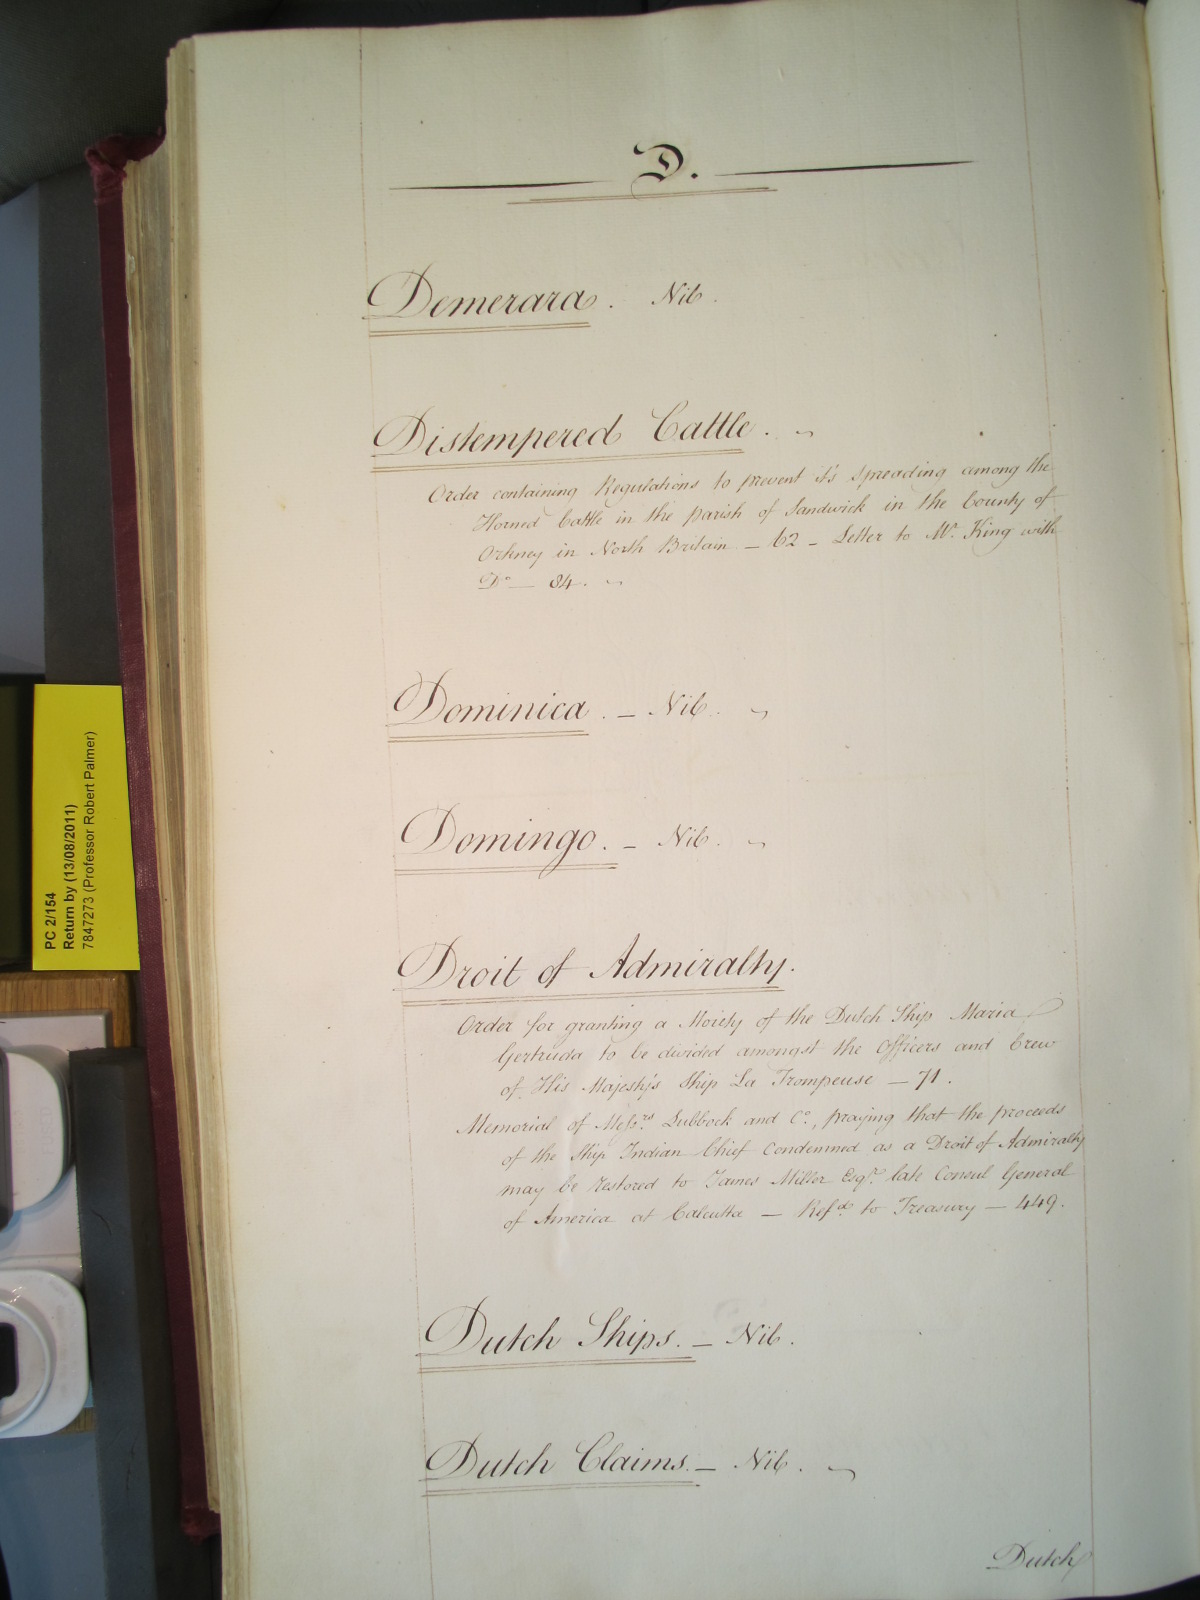 D.
Demerara. Nil.
Distempered Cattle.
Order containing Regulations to prevent it's spreading among the
Horned Cattle in the parish of Sandwick in the County of
Orkney in North Britain — 62 — Letter to Mr. King with
Do — 84.
Dominica. — Nil.
Domingo. — Nil.
Droit of Admiralty.
Order for granting a Moiety of the Dutch Ship Maria
Gertruda to be divided amongst the Officers and Crew
of His Majesty's Ship La Trompeuse — 71.
Memorial of Messrs. Lubbock and Co., praying that the proceeds
of the Ship Indian Chief Condemned as a Droit of Admiralty
may be restored to James Miller Esqr. late Consul General
of America at Calcutta — Refd. to Treasury — 449.
Dutch Ships. — Nil.
Dutch Claims. — Nil.
Dutch
PC 2/154
Return by (13/08/2011)
7847273 (Professor Robert Palmer)